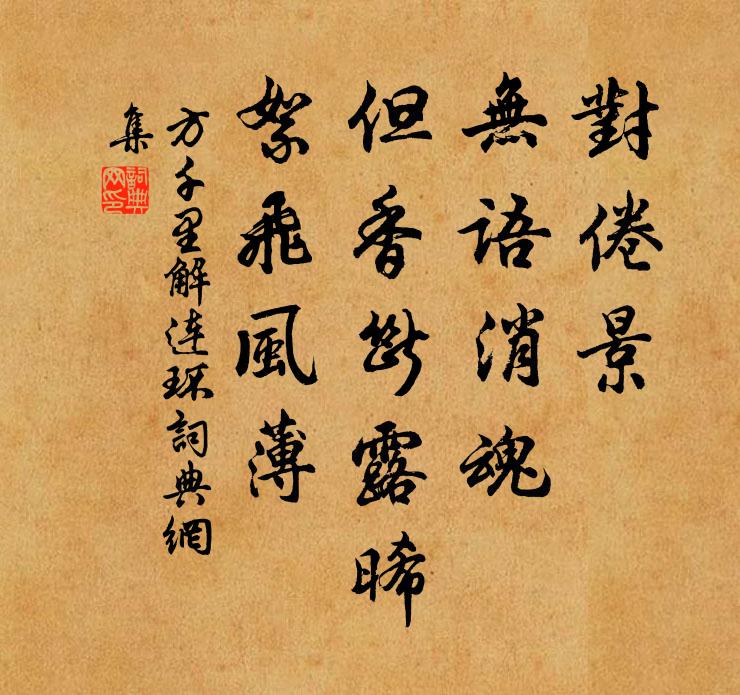 對倦景
無語消魂
但香斷露晞
絮飛風薄
方千里解连环詞典網
集
詞典網印